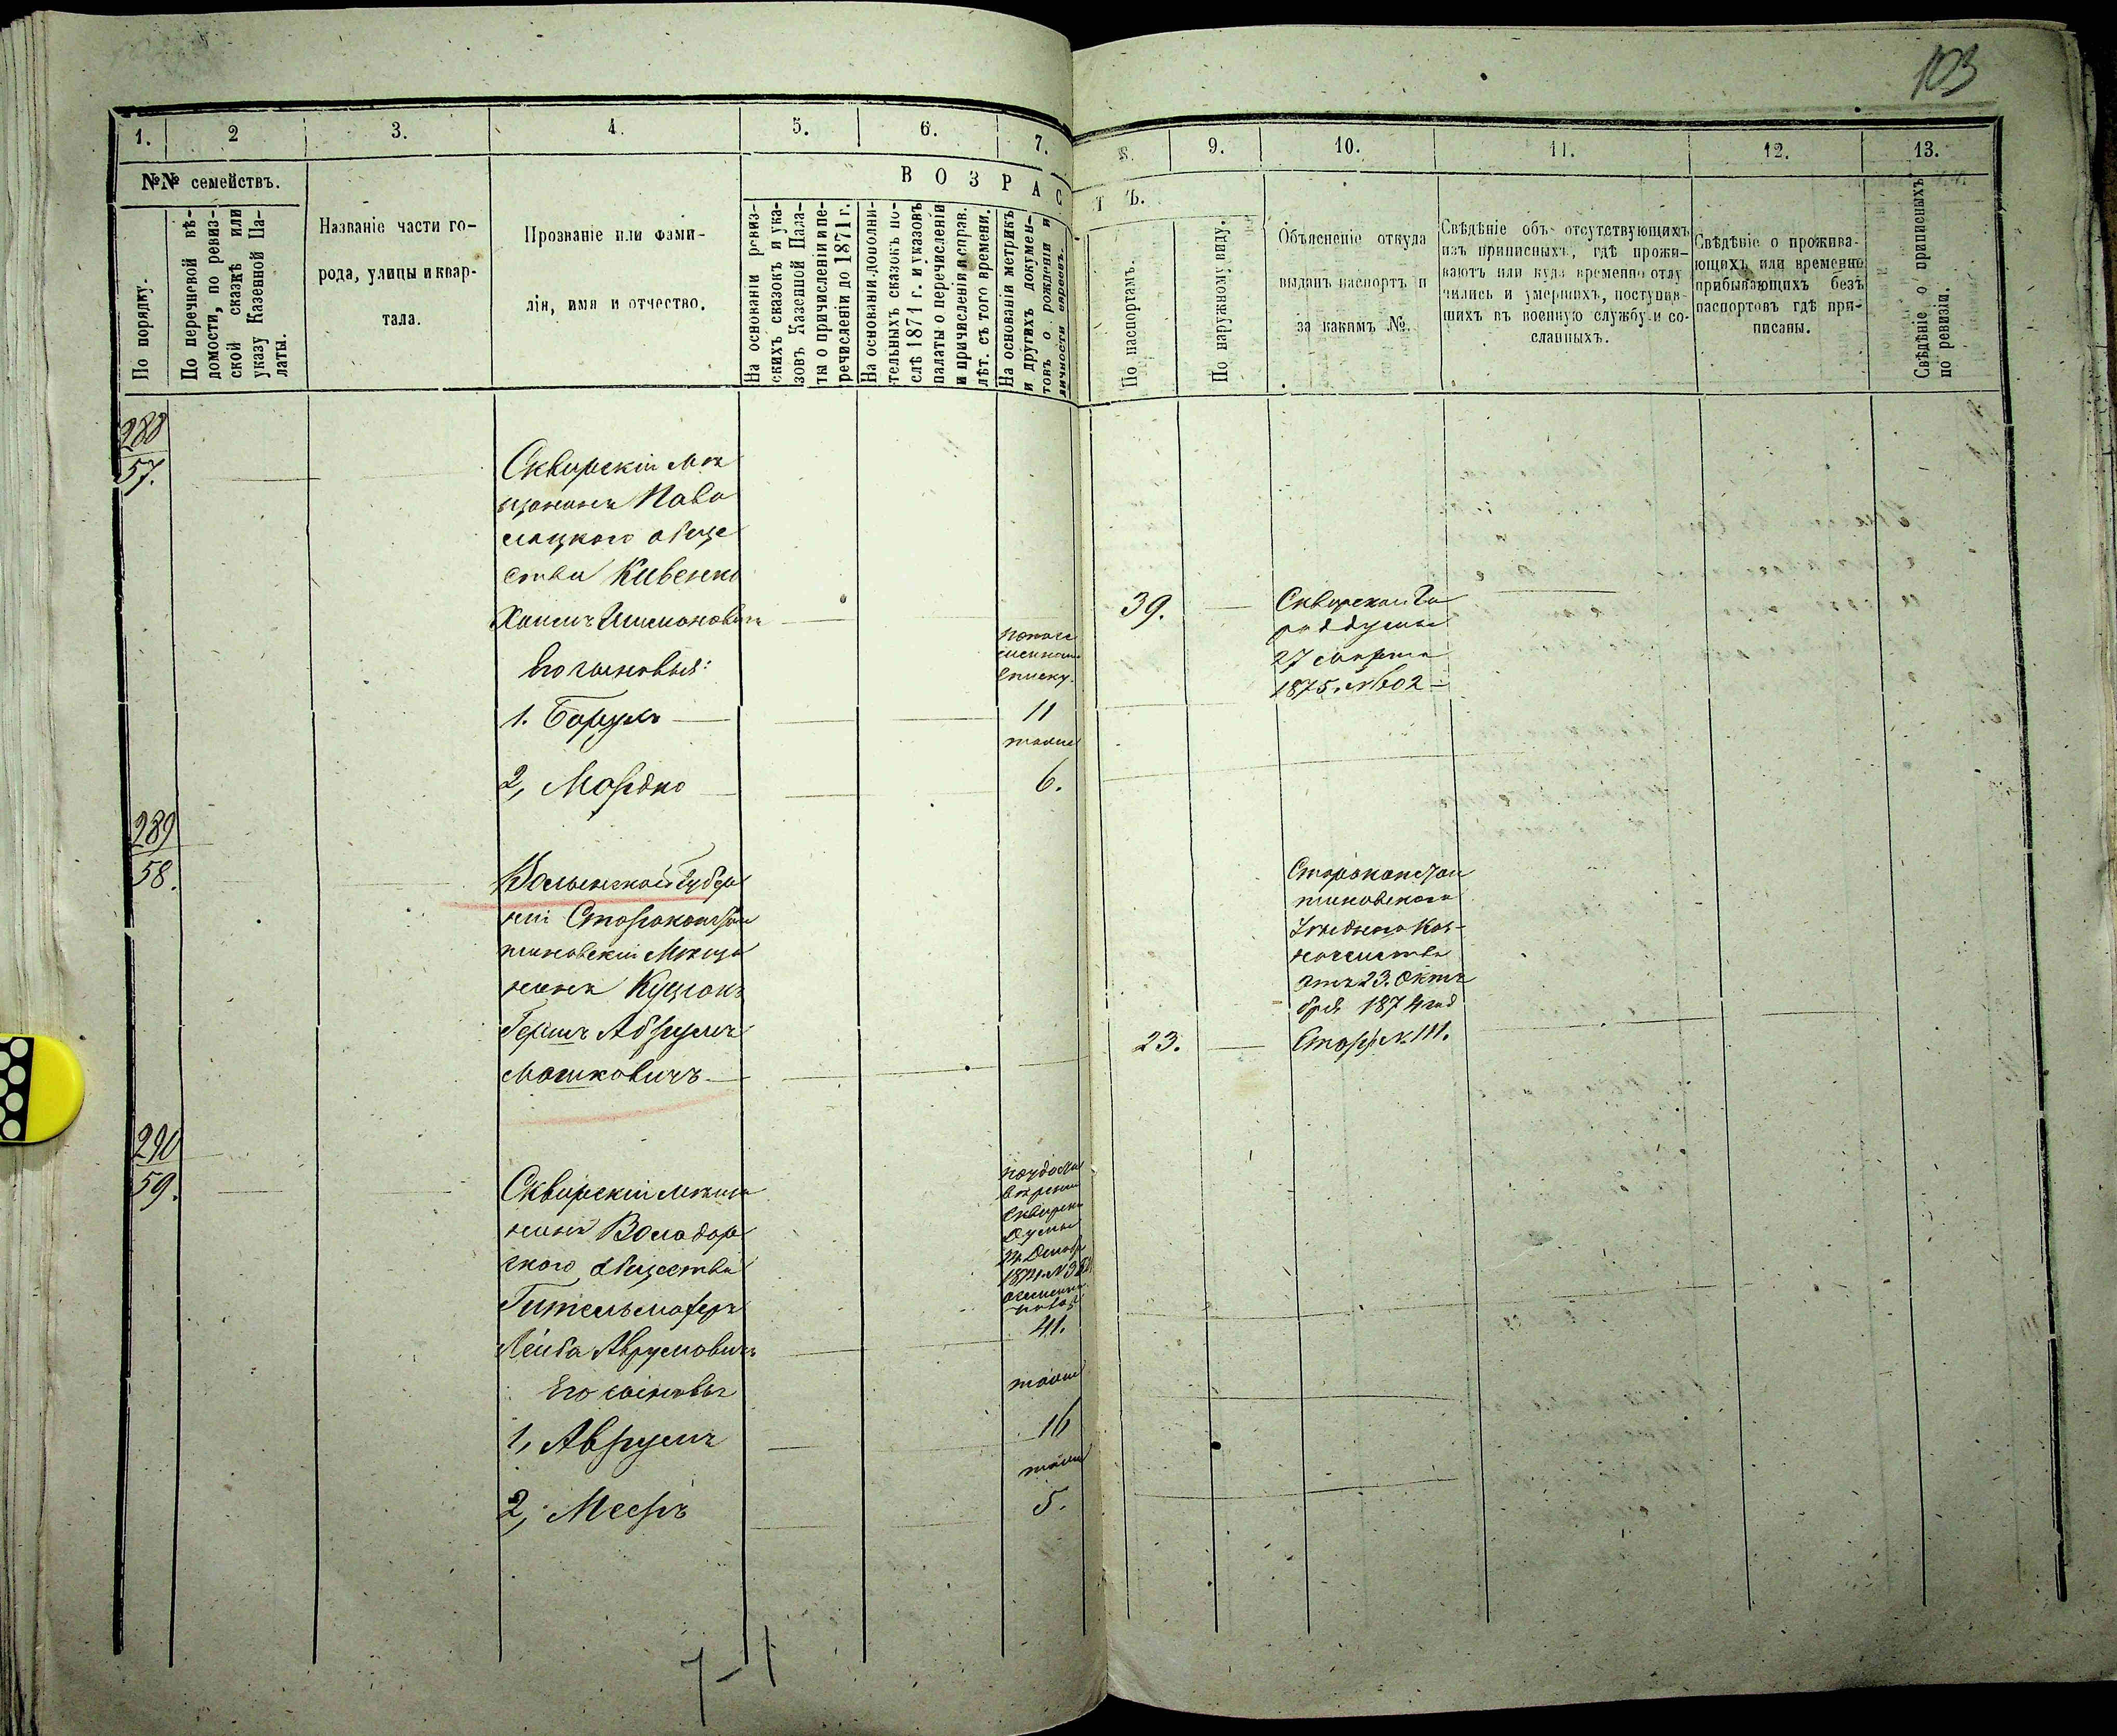 103
1.
2
3.
4.
5.
6.
7.
8.
9.
10.
11.
12.
13.
№№ семействъ.
ВОЗРАС
ТЪ.
По порядку.
По перечневой вѣ-
домости, по ревиз-
ской сказкѣ или
указу Казенной Па-
латы.
Названіе части го-
рода, улицы и квар-
тала.
Прозваніе или фами-
лія, имя и отчество.
На основаніи ревиз-
скихъ сказокъ и ука-
зовъ Казенной Пала-
ты о причисленіи и пе-
речисленіи до 1871 г.
На основаніи дополни-
тельныхъ сказокъ по-
слѣ 1871 г. и указовъ
палаты о перечисленіи
и причисленіи и справ.
лѣт. съ того времени.
На основаніи метрикъ
и другихъ докумен-
товъ о рожденіи и
личности евреевъ.
По паспортамъ.
По наружному виду.
Объясненіе откуда
выданъ паспортъ и
за какимъ №.
Свѣдѣніе объ отсутствующихъ
изъ приписныхъ, гдѣ прожи-
ваютъ или куда временно отлу
чились и умершихъ, поступив-
шихъ въ военную службу и со-
сланныхъ.
Свѣдѣніе о прожива-
ющихъ или временно
прибывающихъ безъ
паспортовъ гдѣ при-
писаны.
Свѣдѣніе о приписныхъ
по ревизіи.
288
57.
Сквирскій мѣ
щанинъ Паво
лоцкого обще
ства Кивенко
Хаимъ Шимоновичъ
39.
Его сыновья:
списку.
1. Борухъ
11
тоже
2, Мордко
6.
Сквирской Го
род думы
27 марта
1875 № 602
289
58.
Волынской Губер
ніи Староконстан
тиновскій Мѣща
нинъ Куцюкъ
Гершъ Абрумъ
Мошковичъ
23.
Староконстан
тиновскаго
Уѣзднаго Каз-
начейства
отъ 23. Октя
бря 1874 год
№ 111.
290
59.
Сквирскій мѣща
нинъ Володар
ского общества
Гительмахеръ
Лейба Аврумовичъ
Сквирской
Думы
41.
Его сыновья
тоже
1, Аврумъ
16
тоже
2, Мееръ
5.
7-1